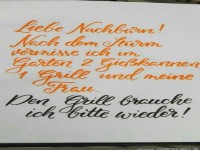 Liebe Nachbarn!
Nach dem Sturm
vermisse ich im
Garten 2 Gießkannen
1 Grill und meine
Frau.
Den Grill brauche
ich bitte wieder!